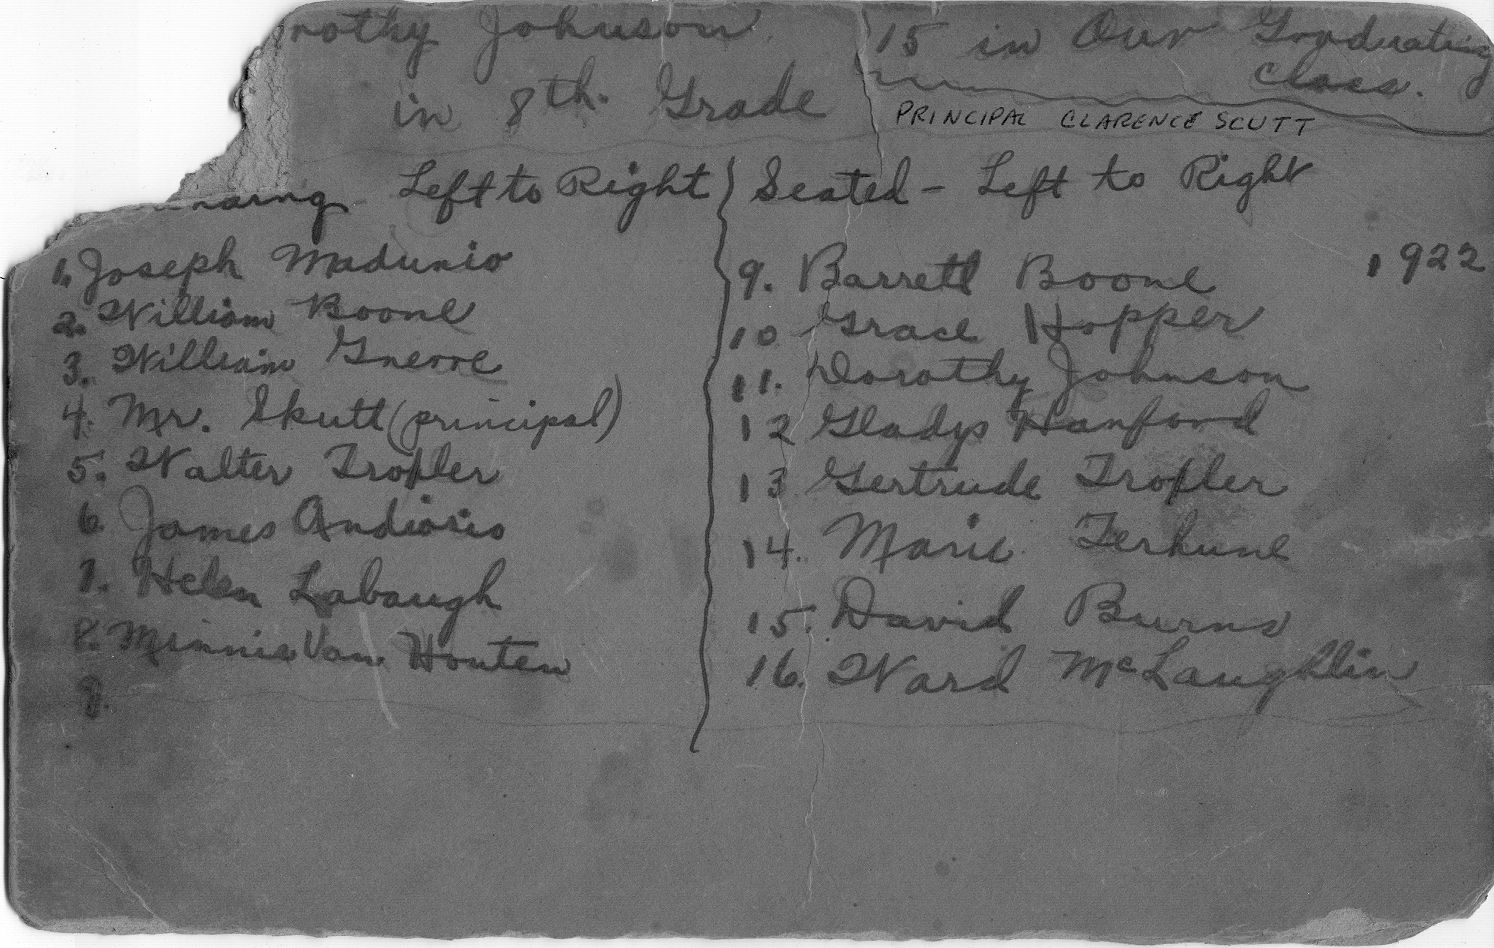 rothy Johnson
in 8th. Grade
15 in Our Graduating
Class.
PRINCIPAL CLARENCE SCUTT
Left to Right
1. Joseph Madunio
2. William Boone
3. William
4. Mr. Skutt (principal)
5. Walter Tropler
6. James
7. Helen Labaugh
8. Minnie Van Houten
9.
Seated - Left to Right
1922
9. Barrett Boone
10 Grace Hopper
11. Dorothy Johnson
12 Gladys Hanford
13 Gertrude Tropler
14. Marie Terhune
15. David Burns
16. Ward McLaughlin